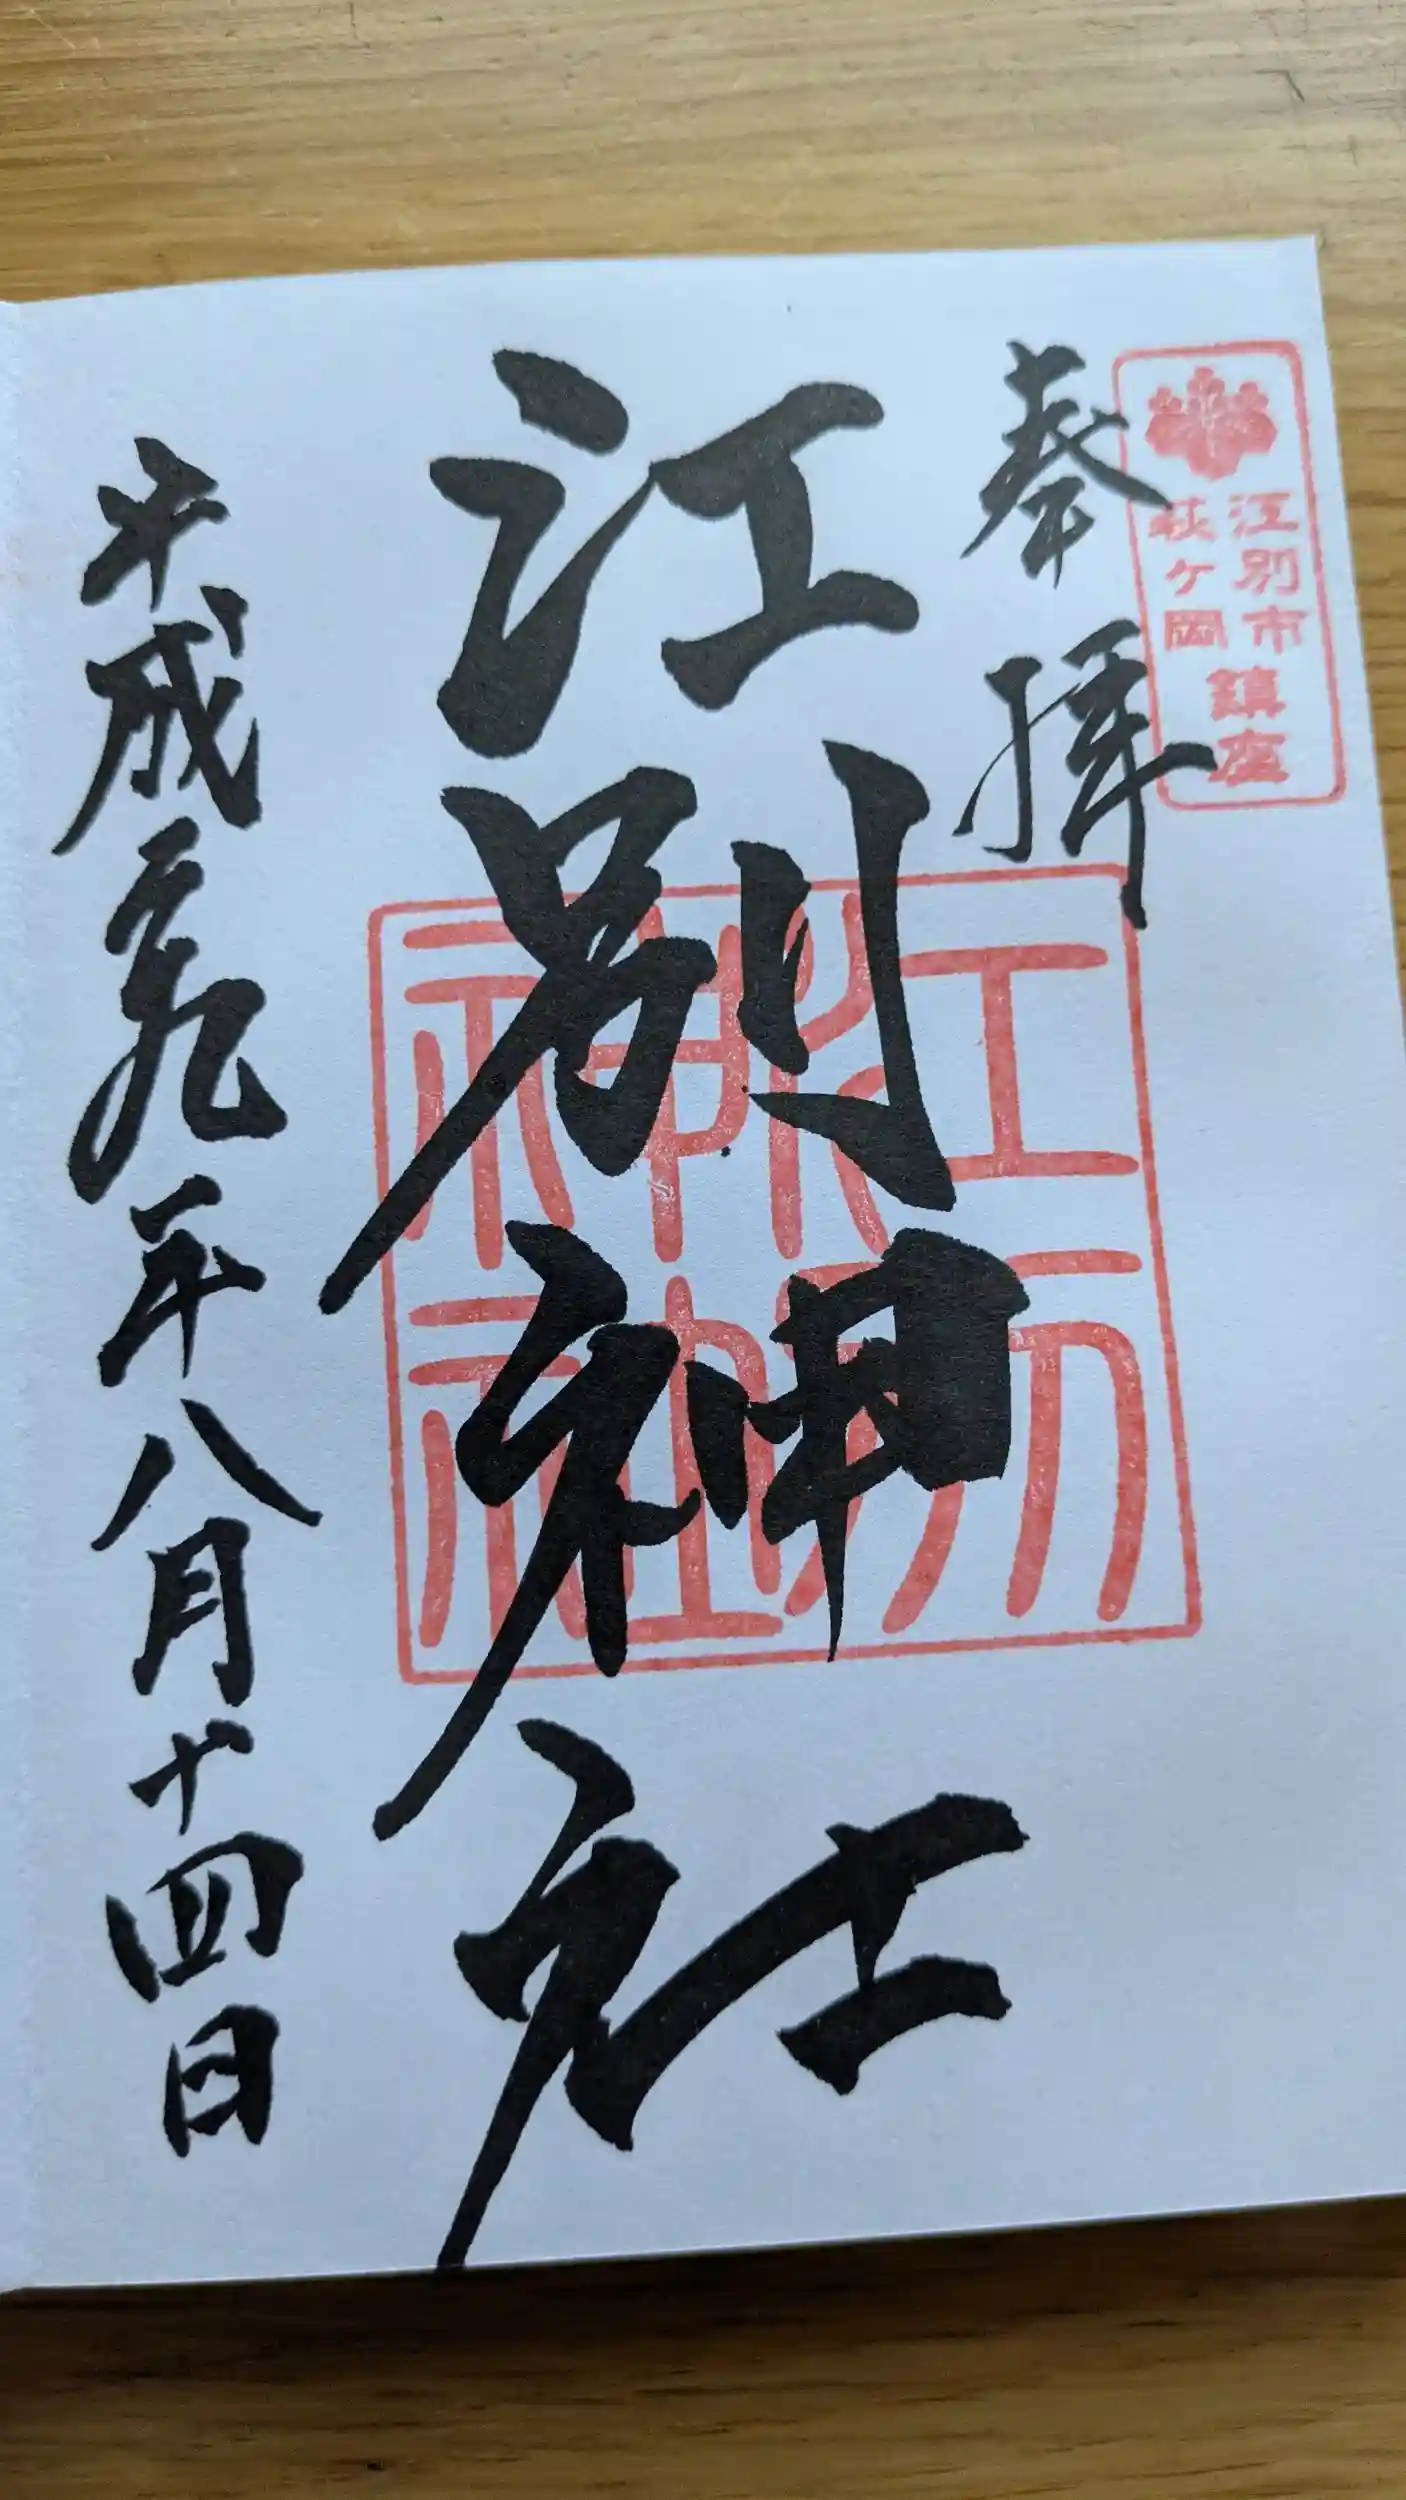 江別市
萩ヶ岡
鎮座
奉拝
江別神社
江別神社
平成二九年八月十四日